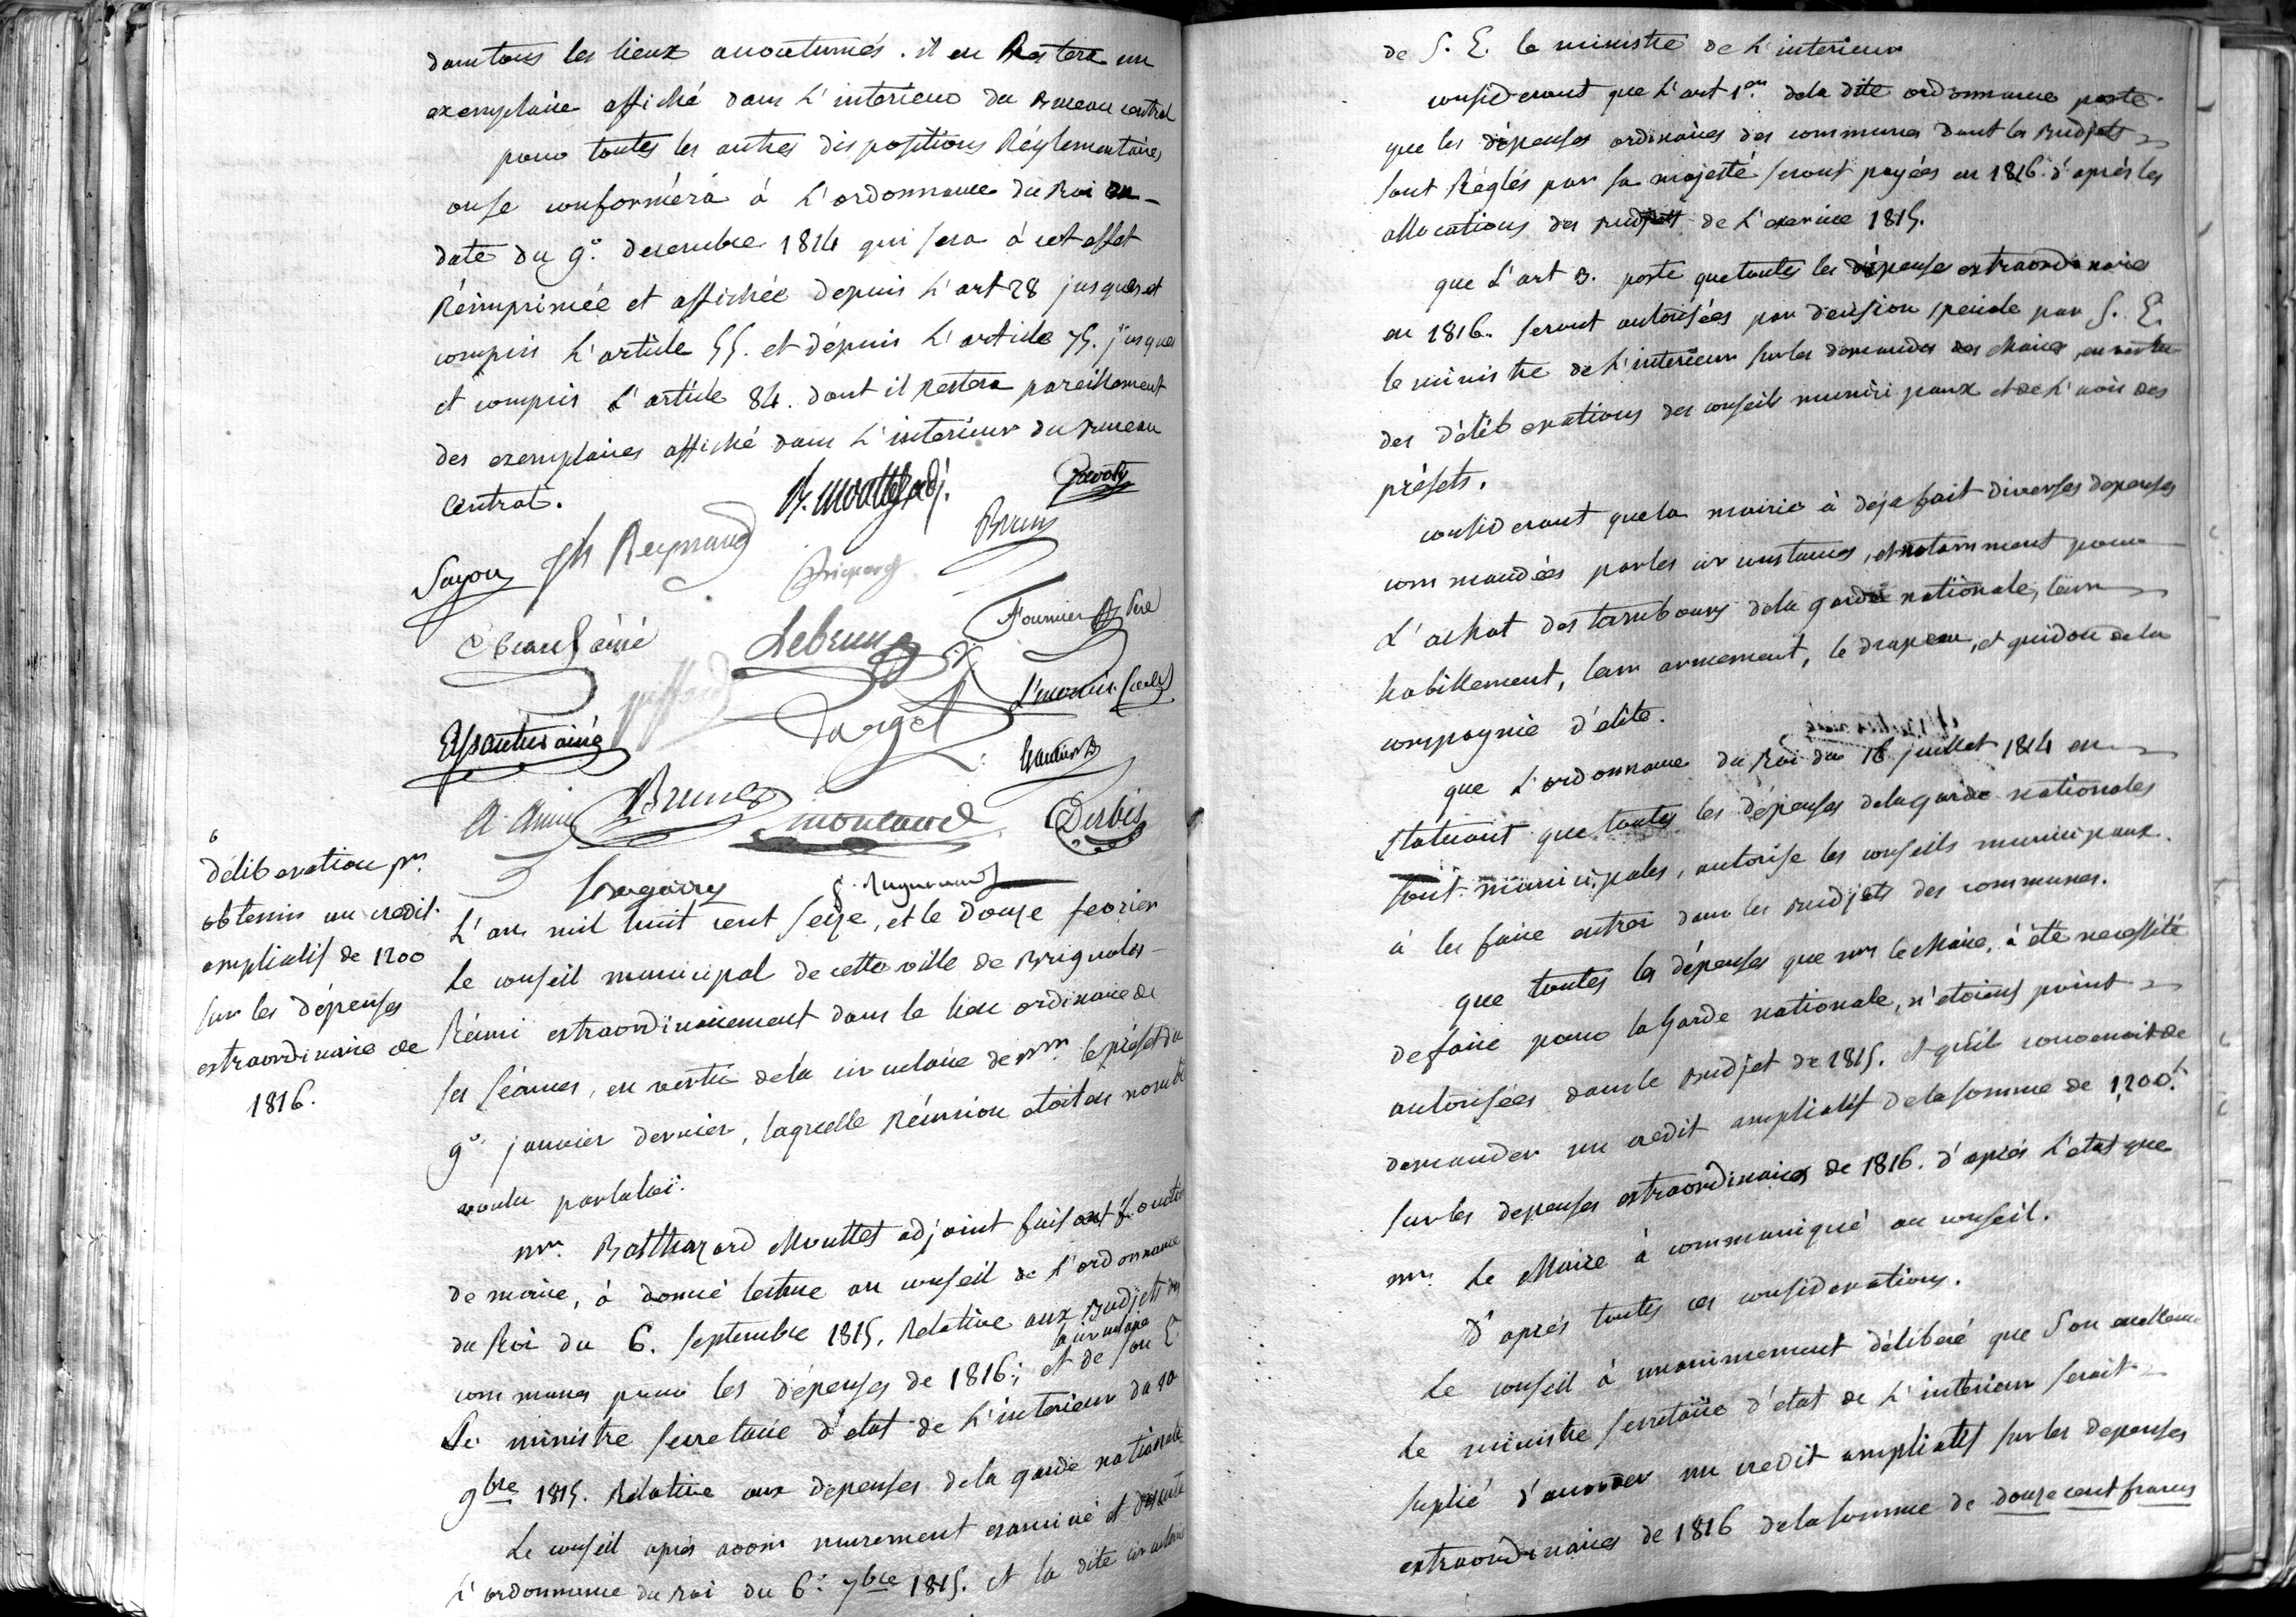 dans tous les lieux accoutumés. il en Restera un
exemplaire affiché dans L'interieur du Bureau central
pour toutes les autres dispositions Réglementaires
on se conformera à L'ordonnance du Roi en
date du 9.e decembre 1814 qui sera à cet effet
Réimprimée et affichée depuis L'art 28 jusques et
compris L'article 55. et dépuis L'article 75. jusques
et compris L'article 84. dont il Restera pareillement
des exemplaires affiché dans L'interieur du Bureau
Central.
B. Mouttet adj.
Sayou Jh Reynaud
Brun
ainé Lebrun Fournier
Dargel
ainé
Brunet
Derbès
6
déliberation pr.
obtenir un credit
ampliatif de 1200
sur les dépenses
extraordinaire de
1816.
L'an mil huit cent seize, et le douze fevrier
Le conseil municipal de cette ville de Brignoles
Réuni extraordinairement dans le lieu ordinaire de
ses séances, en vertu de la circulaire de mr. le préfet du
9.e janvier dernier, laquelle Réunion etoit en nombre
voulu par la loi.
mr. Balthazard Mouttet adjoint faisant f.onctions
de maire, à donné lecture au conseil de L'ordonnance
du Roi du 6. septembre 1815, Relative aux Budjets des
communes pour les dépenses de 1816; et de la circulaire son E.
Le ministre secretaire d'etat de L'interieur du 10
9bre 1815. Relative aux dépenses de la garde nationale
Le conseil après avoir murement examiné et discuté
L'ordonnance du roi du 6.e 7bre 1815. et la dite circulaire
de S. E. le ministre de L'interieur
considerant que L'art 1er. de la dite ordonnance porte
que les dépenses ordinaires des communes dont les Budjets
sont Réglés par sa majesté seront payées en 1816. d'après les
allocations des Budjets de L'exercice 1815.
que L'art 3. porte que toutes les dépenses extraordinaires
en 1816. seront autorisées par décision speciale par S. E.
le ministre de L'interieur sur les demandes des Maires, en vertu
des déliberations des conseils municipaux et de L'avis des
préfets.
considerant que la mairie à déja fait diverses depenses
commandées par les circonstances, et notamment pour
L'achat des tambours de la garde nationale, leur
habillement, leur armement, le drapeau, et guidon de la
compagnie d'élite.
que L'ordonnance du Roi du 16 juillet 1814 en
statuant que toutes les dépenses de la garde nationales
sont municipales, autorise les conseils municipaux
à les faire entrer dans les Budjets des communes.
que toutes les dépenses que mr le Maire, à été necessité
de faire pour la Garde nationale, n'etoient point
autorisées dans le Budjet de 1815. et qu'il convenoit de
demander un credit ampliatif de la somme de 1200f.
sur les depenses extraordinaires de 1816. d'après L'etat que
mr. Le Maire à communiqué au conseil.
D'après toutes ces considerations.
Le conseil à unanimement déliberé que Son excellence
Le ministre secretaire d'état de L'interieur seroit
suplié d'accorder un credit ampliatif sur les depenses
extraordinaires de 1816 de la somme de douze cent francs